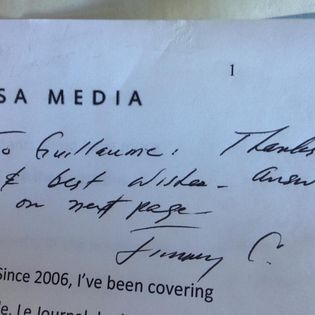 1
SA MEDIA
To Guillaume: Thanks
& best wishes - answ
on next page -
Jimmy C.
Since 2006, I've been covering
le. Le Journal de